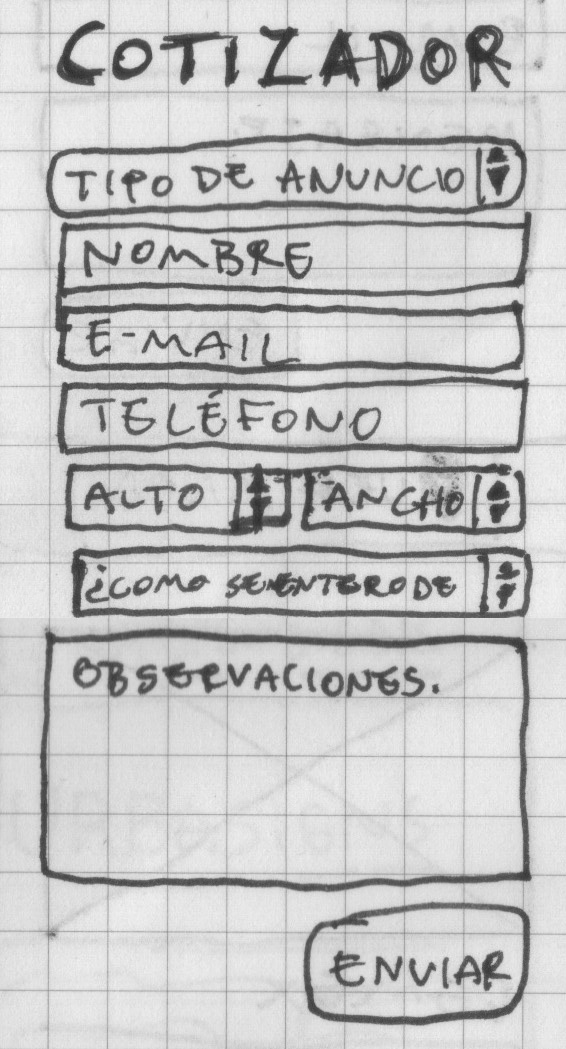 COTIZADOR
TIPO DE ANUNCIO
NOMBRE
E-MAIL
TELÉFONO
ALTO ANCHO
¿COMO SE ENTERO DE
OBSERVACIONES.
ENVIAR